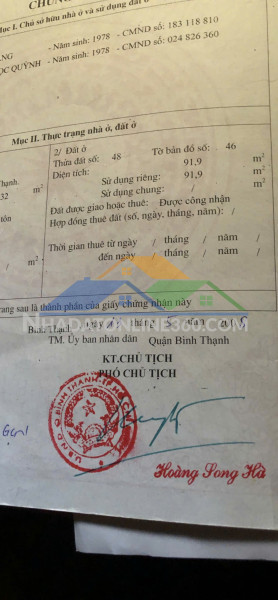 Mục I. Chủ sở hữu nhà ở và sử dụng đất ở
- Năm sinh: 1978 - CMND số: 183 118 810
QUỲNH - Năm sinh: 1978 - CMND số: 024 826 360
Mục II. Thực trạng nhà ở, đất ở
2/ Đất ở
Thửa đất số: 48 Tờ bản đồ số: 46
Diện tích: 91,9 m2
Sử dụng riêng: 91,9 m2
Sử dụng chung: / m2
Đất được giao hoặc thuê: Được công nhận
Hợp đồng thuê đất (số, ngày, tháng, năm): /
Thời gian thuê từ ngày / tháng / năm /
đến ngày / tháng / năm /
Thạnh.
32 m2
tôn
/ m2
trang sau là thành phần của giấy chứng nhận này
TM. Ủy ban nhân dân Quận Bình Thạnh
KT.CHỦ TỊCH
PHÓ CHỦ TỊCH
Hoàng Song Hà